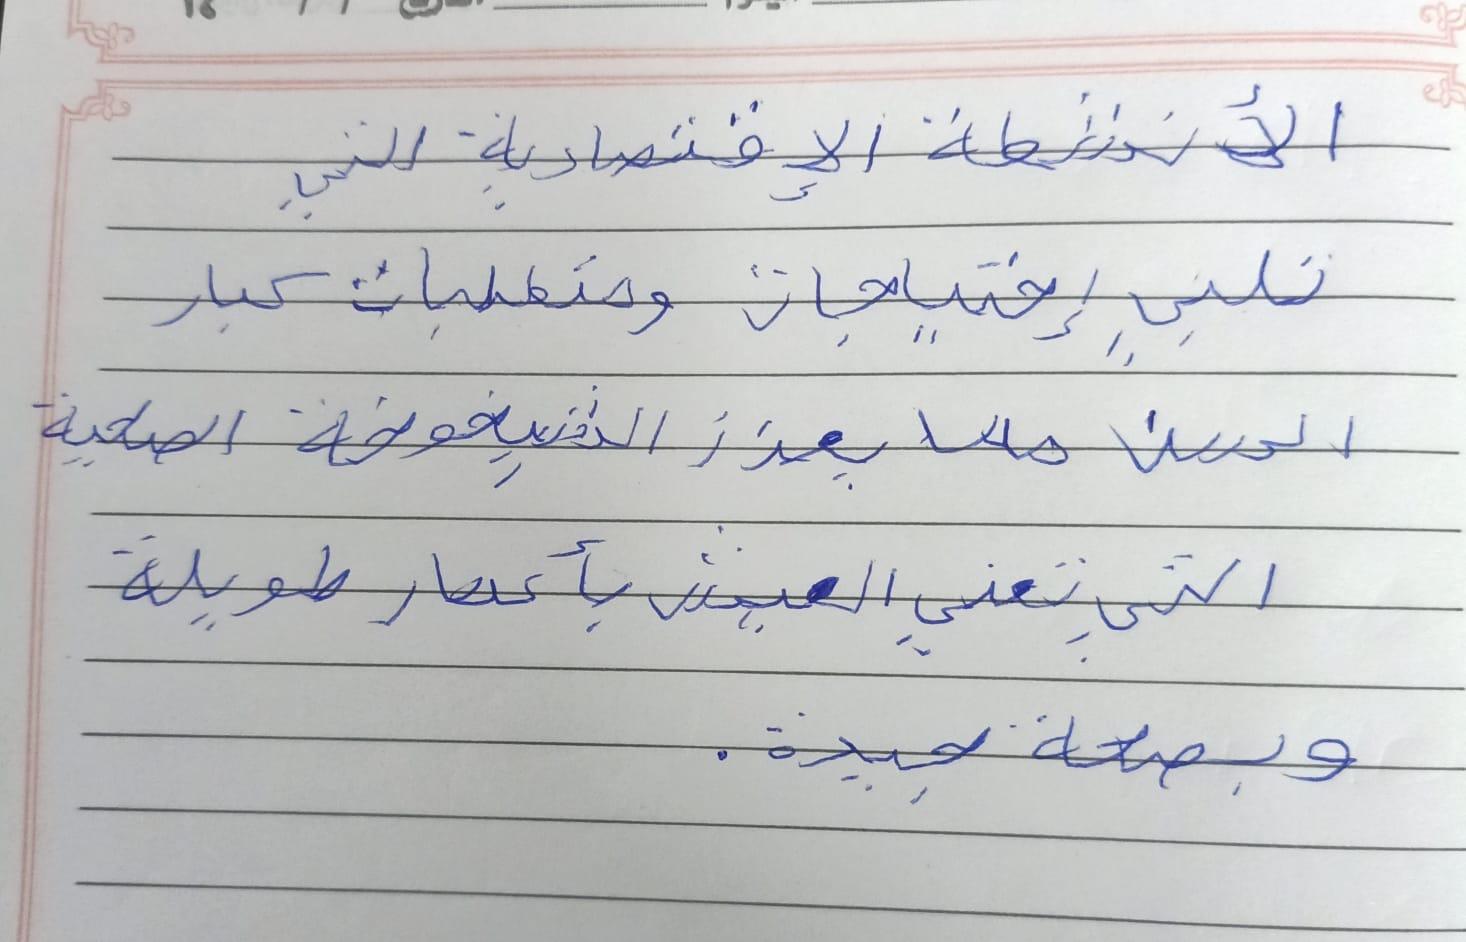 الأنشطة الإقتصادية التي
تلبي إحتياجات ومتطلبات كبار
السن مما يعزز الشيخوخة الصحية
التي تعني العيش بأعمار طويلة
وبصحة جيدة.